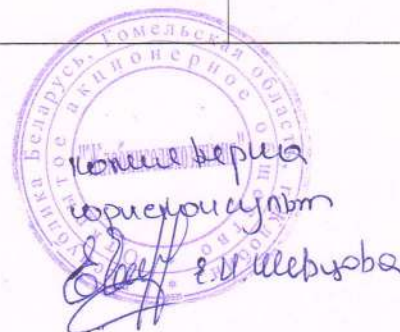 Республика Беларусь, Гомельская область, г. Жлобин
Открытое акционерное общество
копия верна
юрисконсульт
Е.И. Шевцова